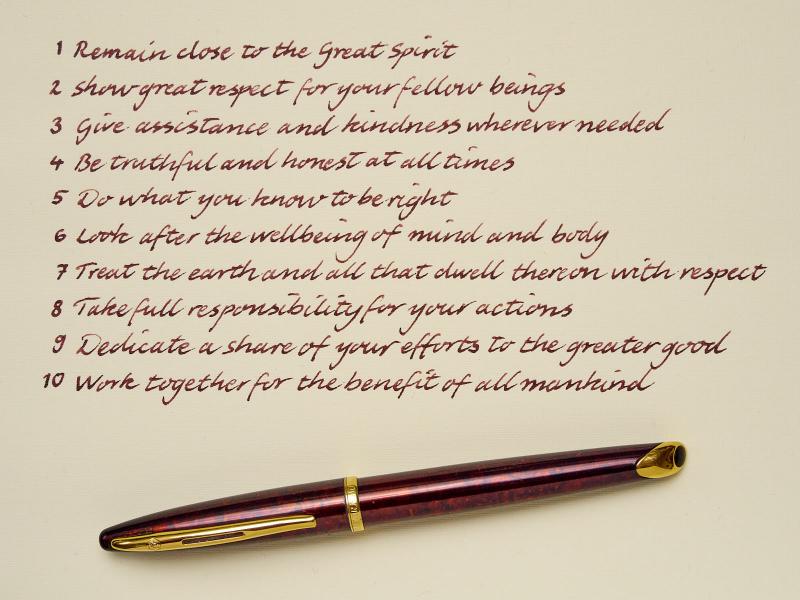 1 Remain close to the Great Spirit
2 Show great respect for your fellow beings
3 Give assistance and kindness wherever needed
4 Be truthful and honest at all times
5 Do what you know to be right
6 Look after the wellbeing of mind and body
7 Treat the earth and all that dwell thereon with respect
8 Take full responsibility for your actions
9 Dedicate a share of your efforts to the greater good
10 Work together for the benefit of all mankind